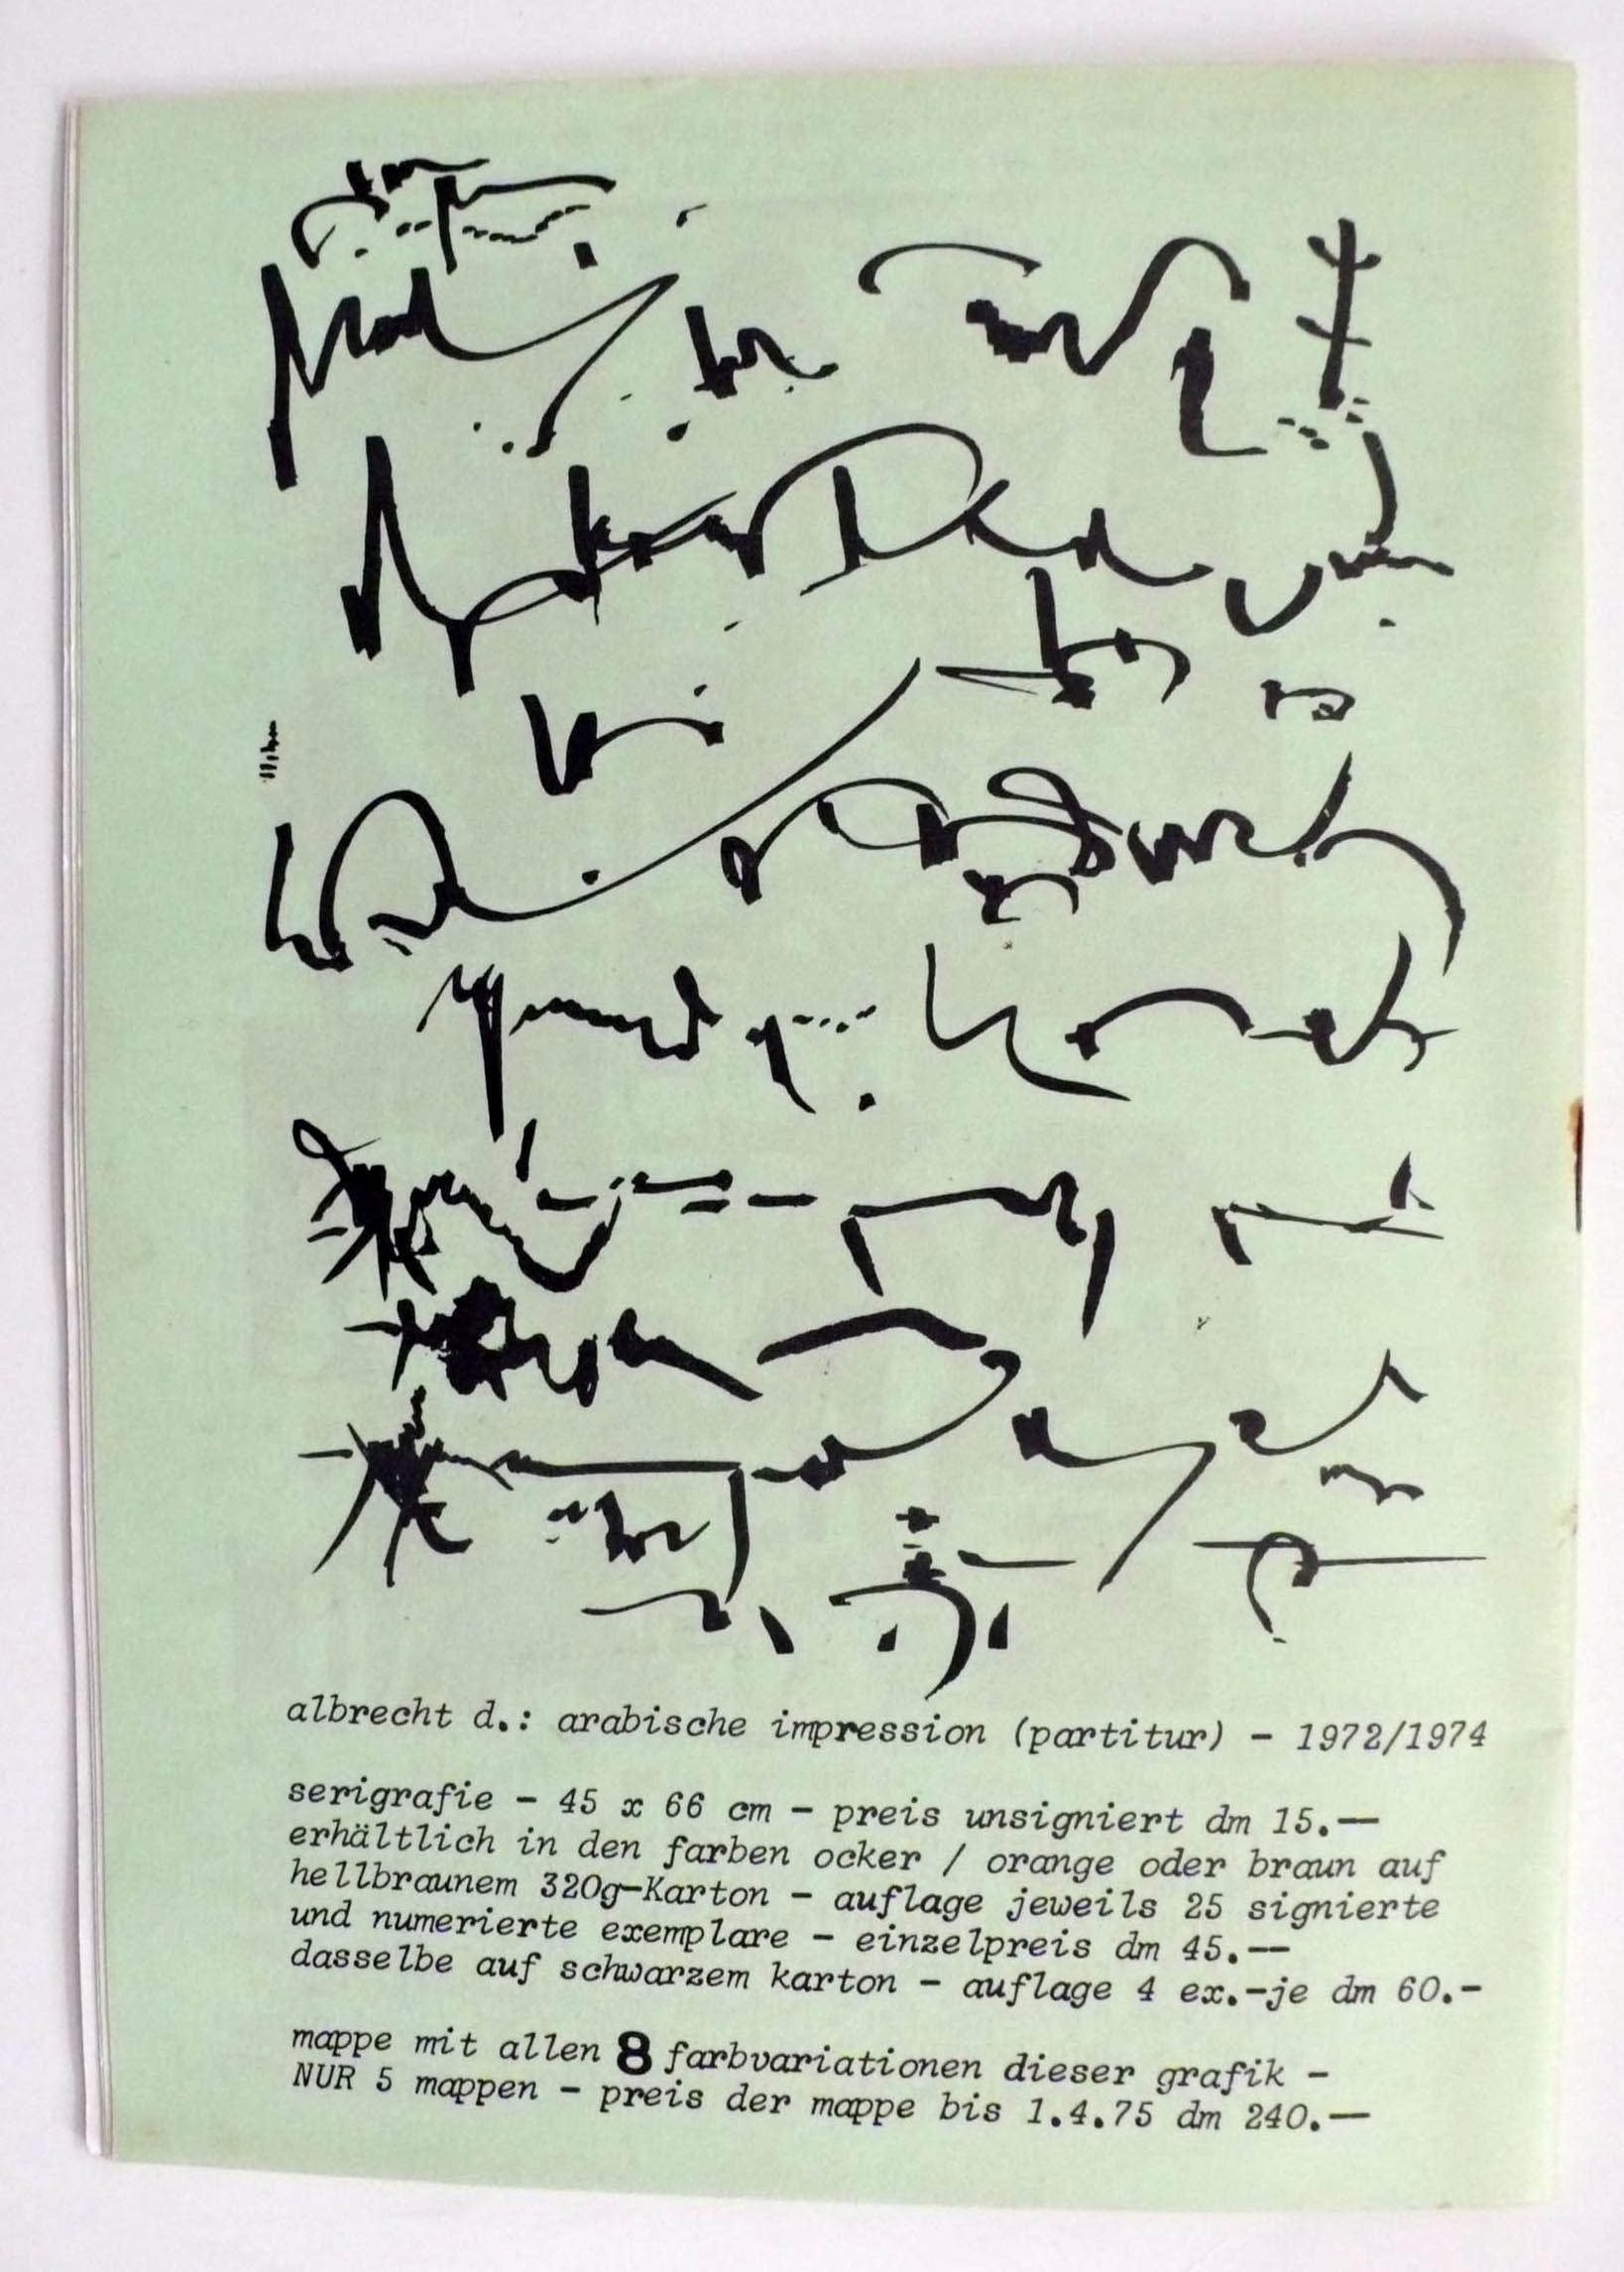 albrecht d.: arabische impression (partitur) - 1972/1974
serigrafie - 45 x 66 cm - preis unsigniert dm 15.--
erhältlich in den farben ocker / orange oder braun auf
hellbraunem 320g-Karton - auflage jeweils 25 signierte
und numerierte exemplare - einzelpreis dm 45.--
dasselbe auf schwarzem karton - auflage 4 ex.-je dm 60.-
mappe mit allen 8 farbvariationen dieser grafik -
NUR 5 mappen - preis der mappe bis 1.4.75 dm 240.--